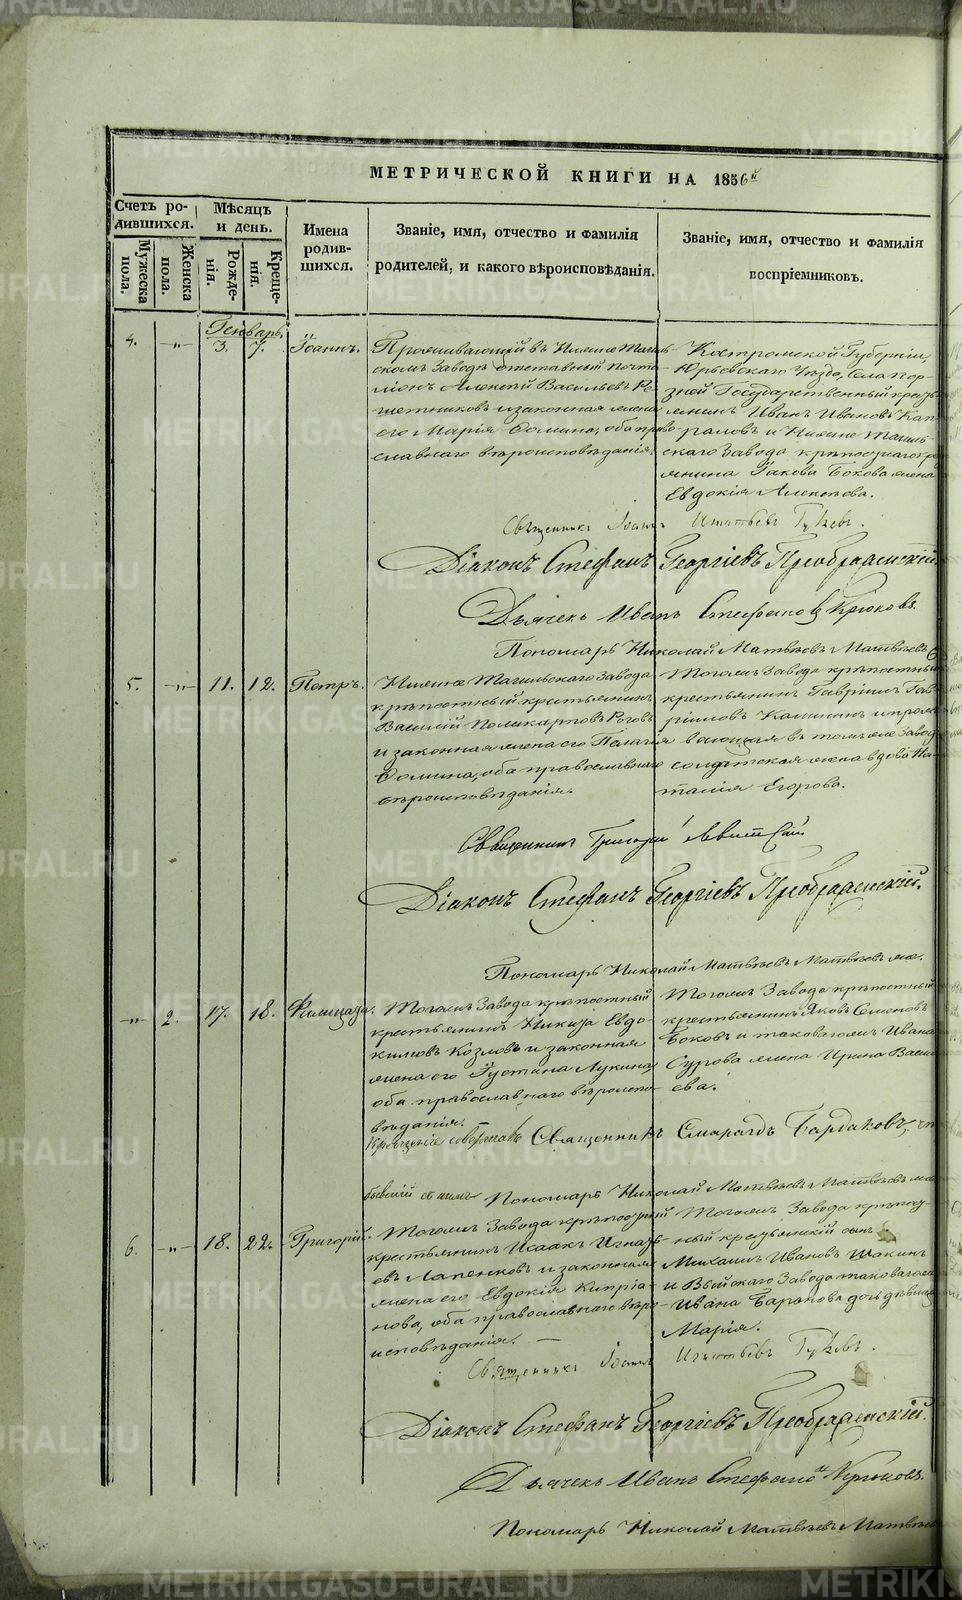 МЕТРИЧЕСКОЙ КНИГИ НА 1856й
Счетъ ро-
дившихся.
Мѣсяцъ
и день.
Имена
родив-
шихся.
Званіе, имя, отчество и фамилія
родителей, и какого вѣроисповѣданія.
Званіе, имя, отчество и фамилія
воспріемниковъ.
Мужеска
пола.
Женска
пола.
Рожде-
нія.
Креще-
нія.
Генварь.
4. -"- 3. 7. Іоаннъ.
Проживающій въ Нижне Тагиль-
скомъ Заводѣ отставный почта-
ліонъ Алексѣй Васильевъ Рѣ-
шетниковъ и законная жена
его Марія Ѳомина, оба право-
славнаго вѣроисповѣданія.
Костромской Губерніи,
Юрьевскаго Уѣзда, Села Пор-
зней Государственный кресть-
янинъ Иванъ Ивановъ Кап-
раловъ и Нижне Тагиль-
скаго Завода крѣпостнаго кре
янина Іакова Бокова жена
Евдокія Алексѣева.
Священникъ Іоаннъ Игнатьевъ
Діаконъ Стефанъ Георгіевъ Преображенскій
Дьячекъ Иванъ Стефановъ Крюковъ.
Пономарь Николай Матвѣевъ Матвѣевъ
5. -"- 11. 12. Петръ.
Нижне Тагильскаго Завода
крѣпостный крестьянинъ
Василій Поликарповъ Роговъ
и законная жена его Пелагія
Ѳомина, оба православнаго
вѣроисповѣданія.
Тогожъ Завода крѣпостный
крестьянинъ Гавріилъ Гав-
риловъ Калининъ и прожи-
вающая въ томъ же Заводѣ
солдатская жена вдова На-
талія Егорова.
Священникъ Григорій Левитскій
Діаконъ Стефанъ Георгіевъ Преображенскій.
Пономарь Николай Матвѣевъ Матвѣевъ же.
-"- 2. 17. 18. Филицата.
Тогожъ Завода крѣпостный
крестьянинъ Никита Евдо-
кимовъ Козловъ и законная
жена его Іустина Лукина
оба православнаго вѣроиспо-
вѣданія.
Тогожъ Завода крѣпостный
крестьянинъ Яковъ Семеновъ
Боковъ и таковагожъ Ивана
Сурова жена Ирина Васи-
ева.
Крещеніе совершалъ Священникъ Смарагдъ Бардаковъ,
бывшій съ нимъ Пономарь Николай Матвѣевъ Матвѣевъ же
6. -"- 18. 22. Григорій.
Тогожъ Завода крѣпостный
крестьянинъ Исаакъ Игнать-
евъ Лапенковъ и законная
жена его Евдокія Кипріа-
нова, оба православнаго вѣро-
исповѣданія.
Тогожъ Завода крѣпост-
ный крестьянскій сынъ
Михаилъ Ивановъ Шакинъ
и Выйскаго Завода таковагожъ
Ивана Баранова дочь дѣвица
Марія.
Священникъ Іоаннъ Игнатьевъ
Діаконъ Стефанъ Георгіевъ Преображенскій.
Дьячекъ Иванъ Стефановъ Крюковъ.
Пономарь Николай Матвѣевъ Матвѣевъ